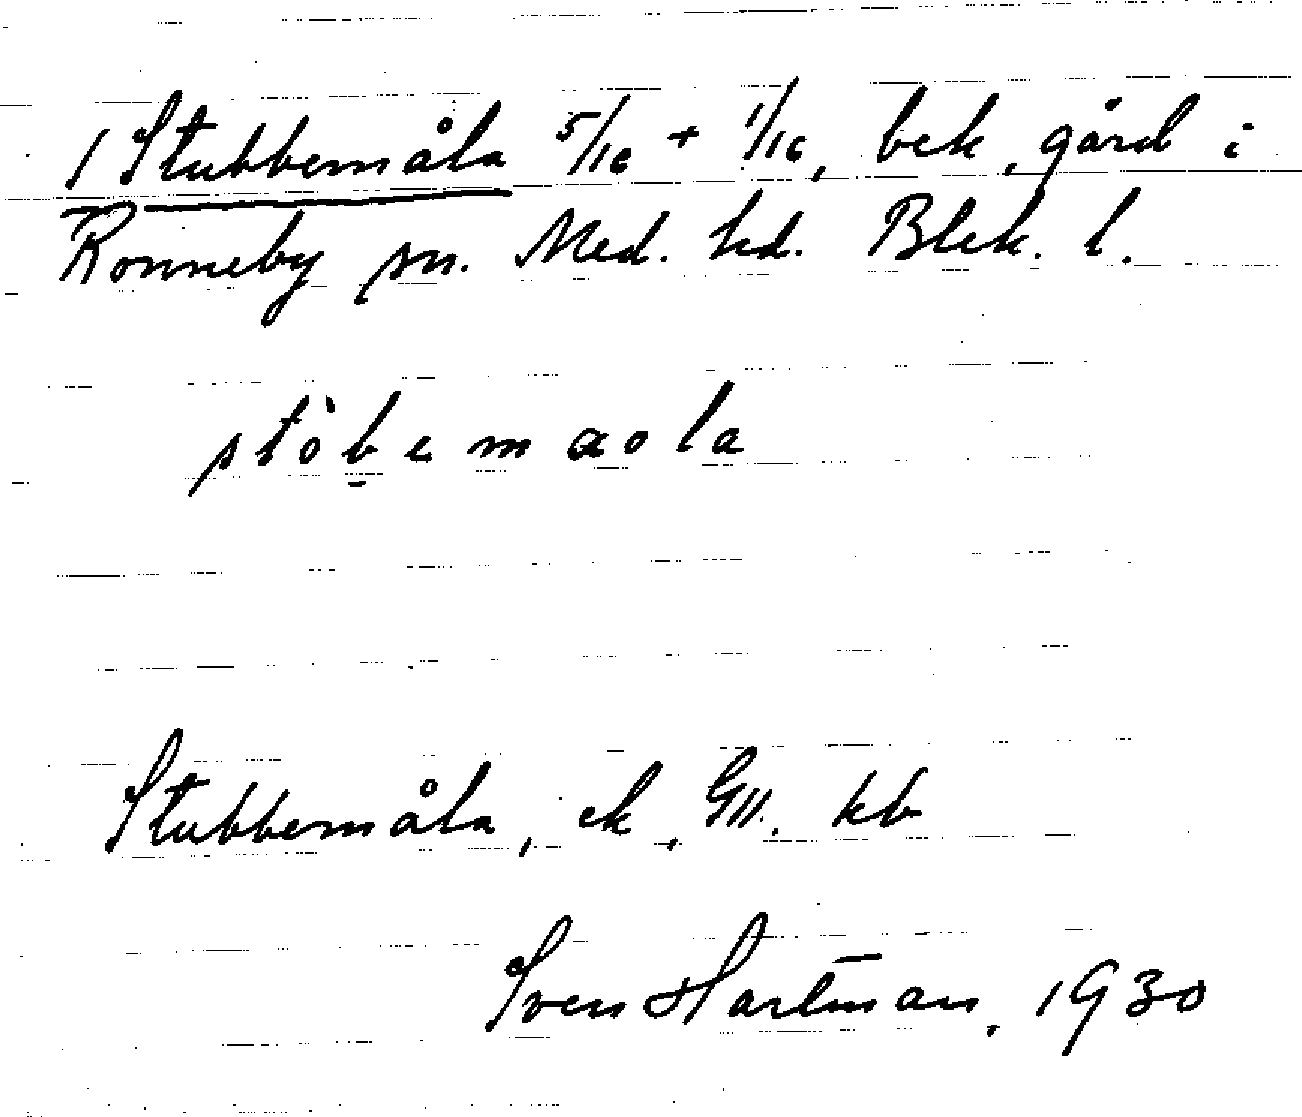 1 Stubbemåla 5/16 + 1/16, bek, gård i
Ronneby sn. Med. hd. Blek. l.
stòbemaola
Stubbemåla, ek, GII. kb
Sven Hartman, 1930